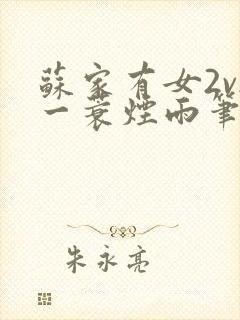 蘇家有女2v
一蓑煙雨筆
朱永亮